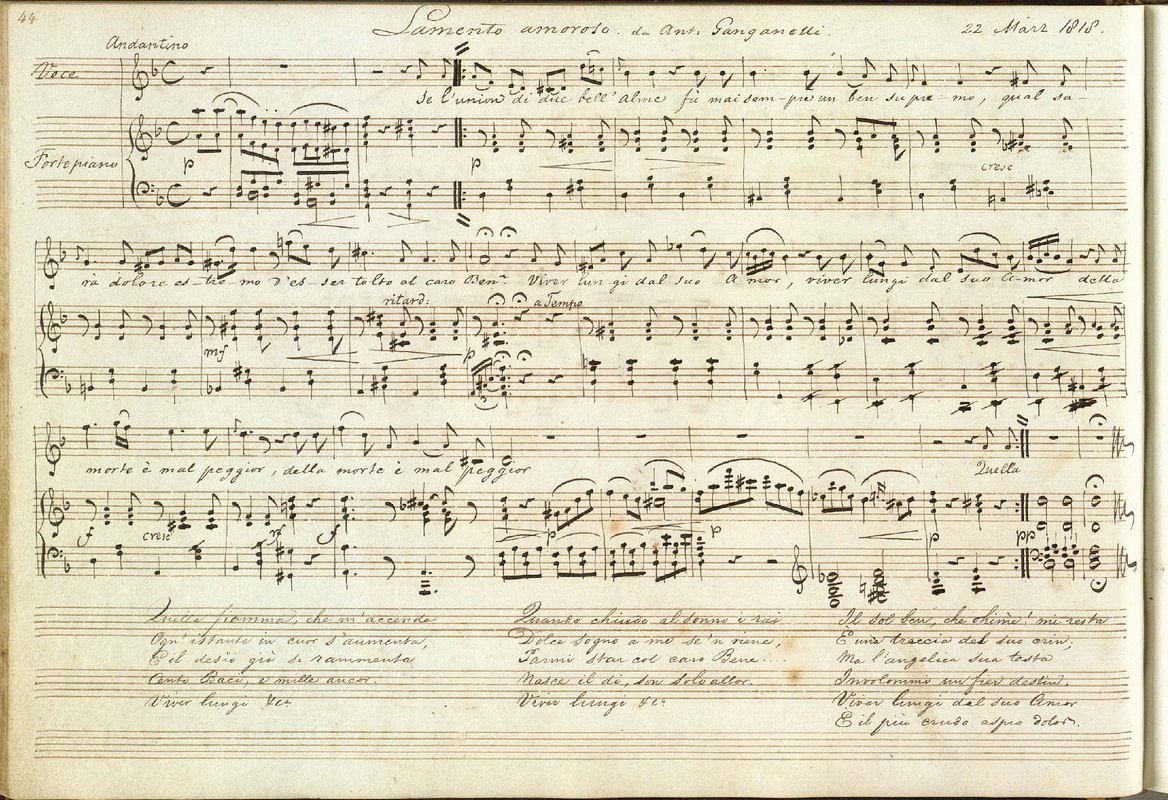 44
Lamento amoroso. da Ant: Ganganelli.
22 März 1818.
Andantino
Voce
Se l'union di due bell'alme fù mai sempre un ben supremo, qual sa-
Fortepiano
p
p
cresc
rà dolore estremo d'esser tolto al caro Ben. Viver lungi dal suo Amor, viver lungi dal suo Amor della
ritard:
a Tempo
mf
p
morte è mal peggior, della morte è mal peggior
Quella
f
cresc
f
p
p
p
pp
Quella fiamma, che m'accende
Ogn'istante in cuor s'aumenta,
E il desio già si rammenta
Cento Baci, e mille ancor.
Viver lungi &c:
Quando chiudo al sonno i rai
Dolce sogno a me se'n viene,
Parmi star col caro Bene...
Nasce il dì, son solo allor.
Viver lungi &c:
Il sol ben, che ohimè! mi resta
E una traccia del suo crin,
Ma l'angelica sua testa
Involommi un fier destin.
Viver lungi dal suo Amor
E il più crudo aspro dolor.